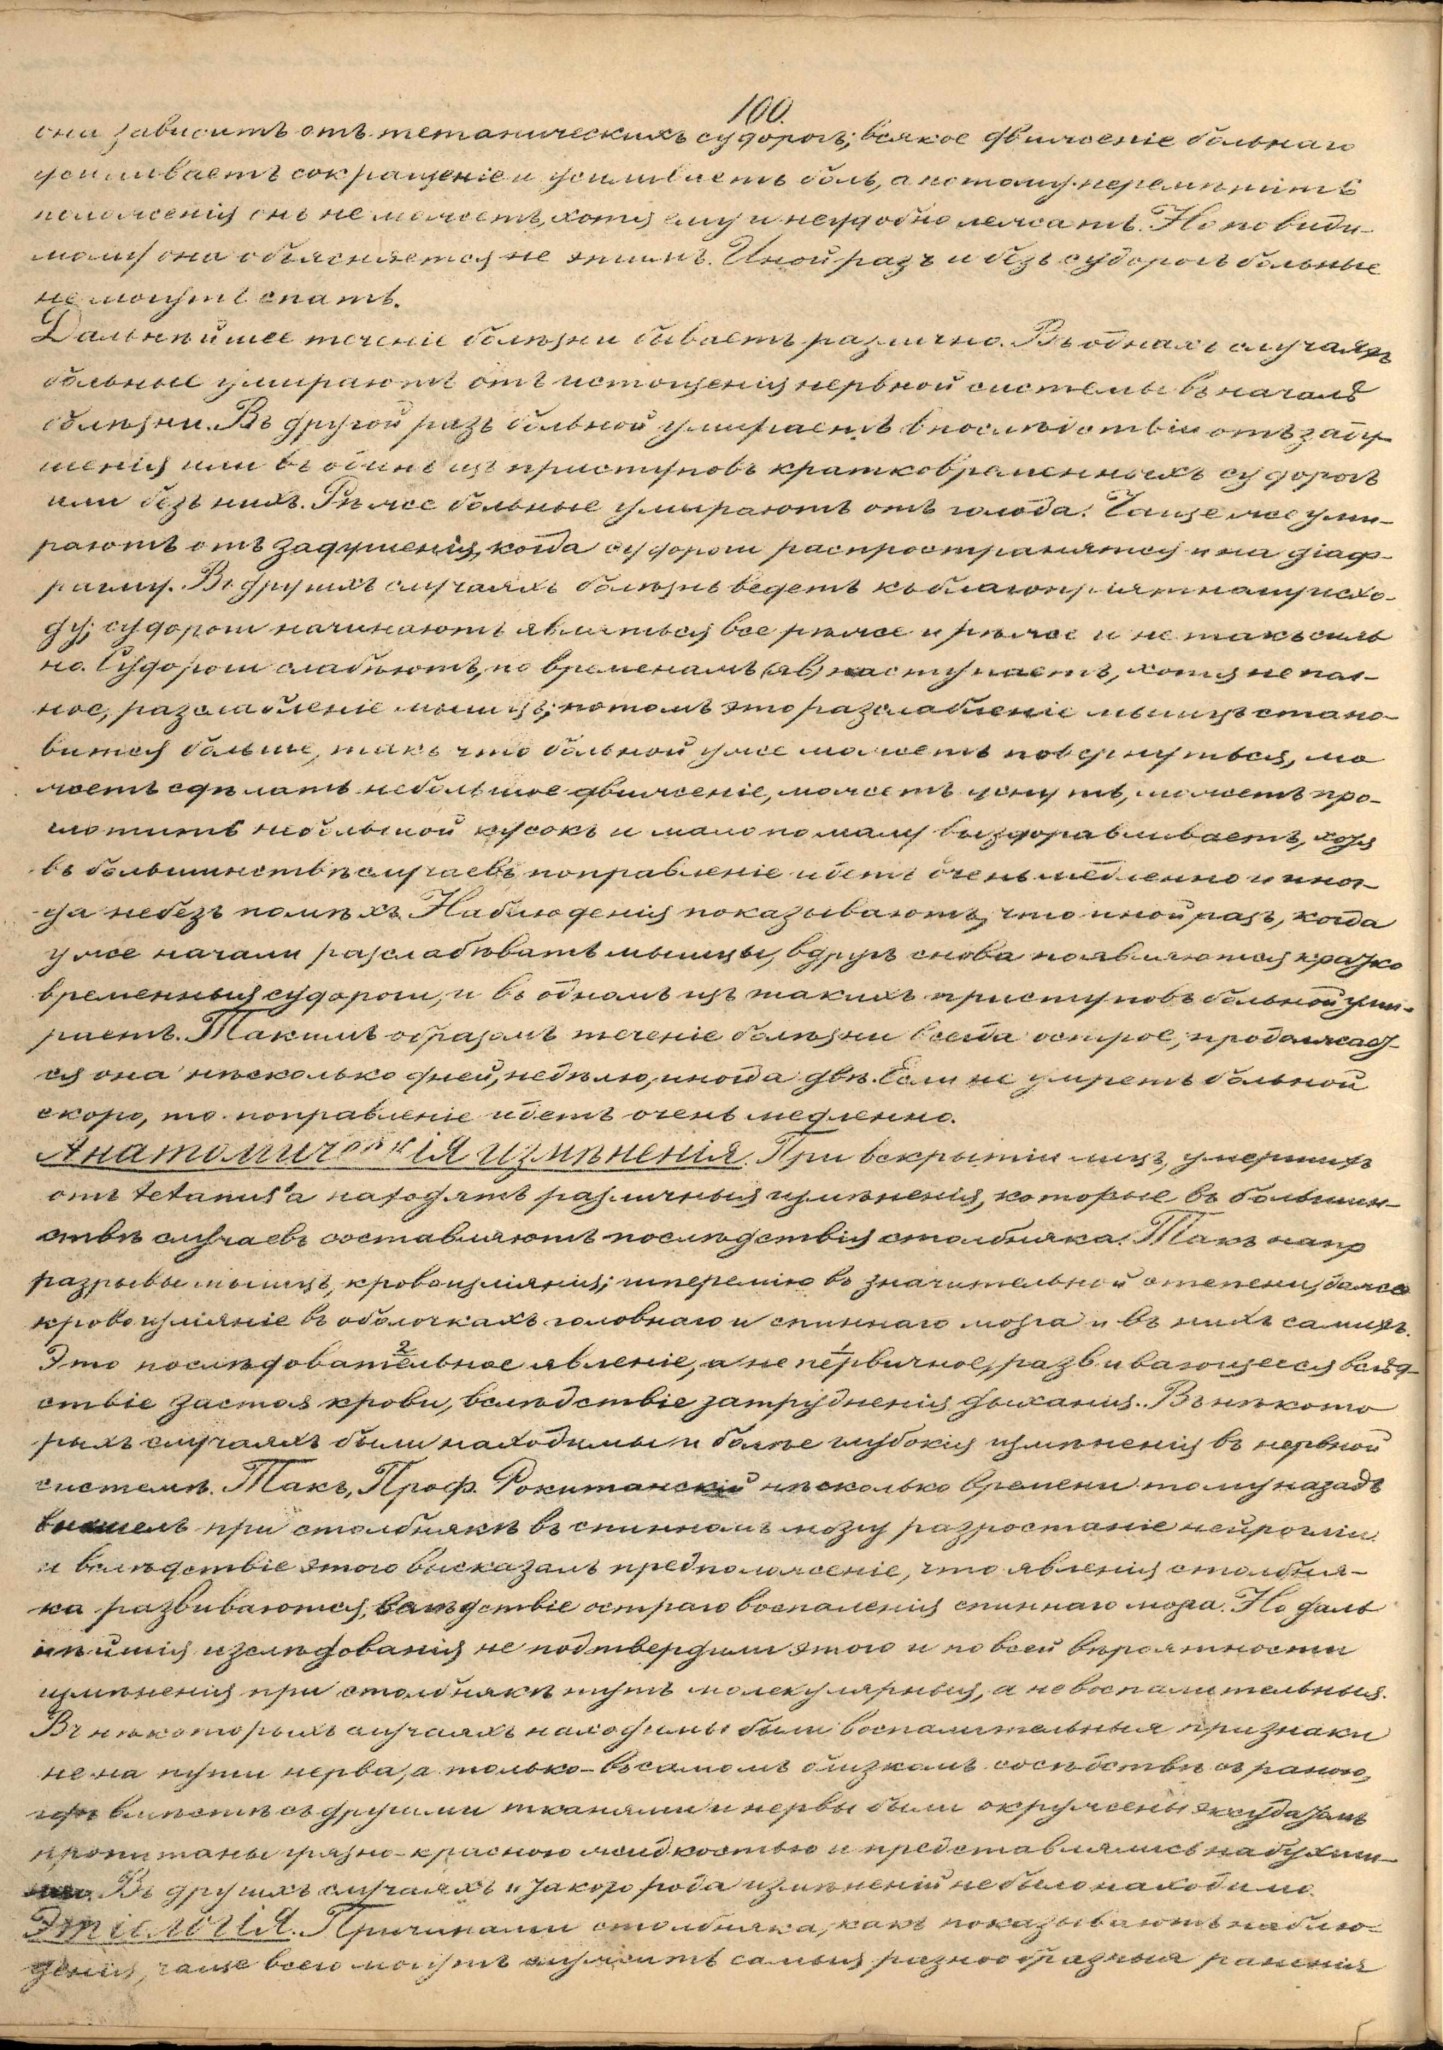 100.
она зависитъ отъ тетаническихъ судорогъ; всякое движеніе больнаго
усиливаетъ сокращеніе и усиливаетъ боль, а потому перемѣнить
положенія онъ не можетъ, хотя ему и неудобно лежать. Но по види-
мому она объясняется не этимъ. Иной разъ и безъ судорогъ больные
не могутъ спать.
Дальнѣйшее теченіе болѣзни бываетъ различно. Въ однихъ случаяхъ
больные умираютъ отъ истощенія нервной системы въ началѣ
болѣзни. Въ другой разъ больной умираетъ впослѣдствіи отъ заду-
шенія или въ одинъ изъ приступовъ кратковременныхъ судорогъ
или безъ нихъ. Рѣже больные умираютъ отъ голода. Чаще же уми-
раютъ отъ задушенія, когда судороги распространятся и на діаф-
рагму. Въ другихъ случаяхъ болѣзнь ведетъ къ благопріятному исхо-
ду; судороги начинаютъ являться все рѣже и рѣже и не такъ силь
но. Судороги слабѣютъ, по временамъ наступаетъ, хотя не пол-
ное, разслабленіе мышцъ; потомъ это разслабленіе мышцъ стано-
вится больше, такъ что больной уже можетъ повернуться, мо
жетъ сдѣлать небольшое движеніе, можетъ уснуть, можетъ про-
глотить небольшой кусокъ и мало по малу выздоравливаетъ, хотя
въ большинствѣ случаевъ поправленіе идетъ очень медленно и иног-
да не безъ помѣхъ. Наблюденія показываютъ, что иной разъ, когда
уже начали разслабѣвать мышцы, вдругъ снова появляются кратко
временныя судороги, и въ одномъ изъ такихъ приступовъ больной уми-
раетъ. Такимъ образомъ теченіе болѣзни всегда острое, продолжает-
ся она нѣсколько дней, недѣлю, иногда двѣ. Если не умретъ больной
скоро, то поправленіе идетъ очень медленно.
Анатомическія измѣненія. При вскрытіи лицъ, умершихъ
отъ tetanus'а находятъ различныя измѣненія, которые въ большин-
ствѣ случаевъ составляютъ послѣдствія столбняка. Такъ напр
разрывы мышцъ, кровоизліянія; гиперемію въ значительной степени, даже
кровоизліяніе въ оболочкахъ головнаго и спиннаго мозга и въ нихъ самихъ.
Это послѣдовательное явленіе, а не первичное, развивающееся вслѣд-
ствіе застоя крови, вслѣдствіе затрудненія дыханія. Въ нѣкото
рыхъ случаяхъ были находимы и болѣе глубокія измѣненія въ нервной
системѣ. Такъ, Проф. Рокитанскій нѣсколько времени тому назадъ
нашелъ при столбнякѣ въ спинномъ мозгу разростаніе нейрогліи
и вслѣдствіе этого высказалъ предположеніе, что явленія столбня-
ка развиваются вслѣдствіе остраго воспаленія спиннаго мозга. Но даль
нѣйшія изслѣдованія не подтвердили этого и по всей вѣроятности
измѣненія при столбнякѣ тутъ молекулярныя, а не воспалительныя.
Въ нѣкоторыхъ случаяхъ находимы были воспалительныя признаки
не на пути нерва, а только въ самомъ близкомъ сосѣдствѣ съ раною,
гдѣ вмѣстѣ съ другими тканями и нервы были окружены экссудатомъ
пропитаны грязно-красною жидкостью и представлялись набухши-
ми. Въ другихъ случаяхъ и такого рода измѣненій не было находимо.
Этіологія. Причинами столбняка, какъ показываютъ наблю-
денія, чаще всего могутъ служить самыя разнообразныя раненія